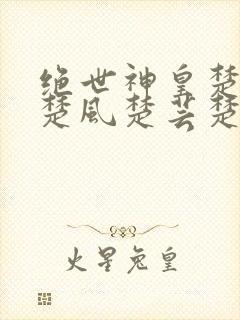 绝世神皇楚
楚风楚芸楚
火星兔皇